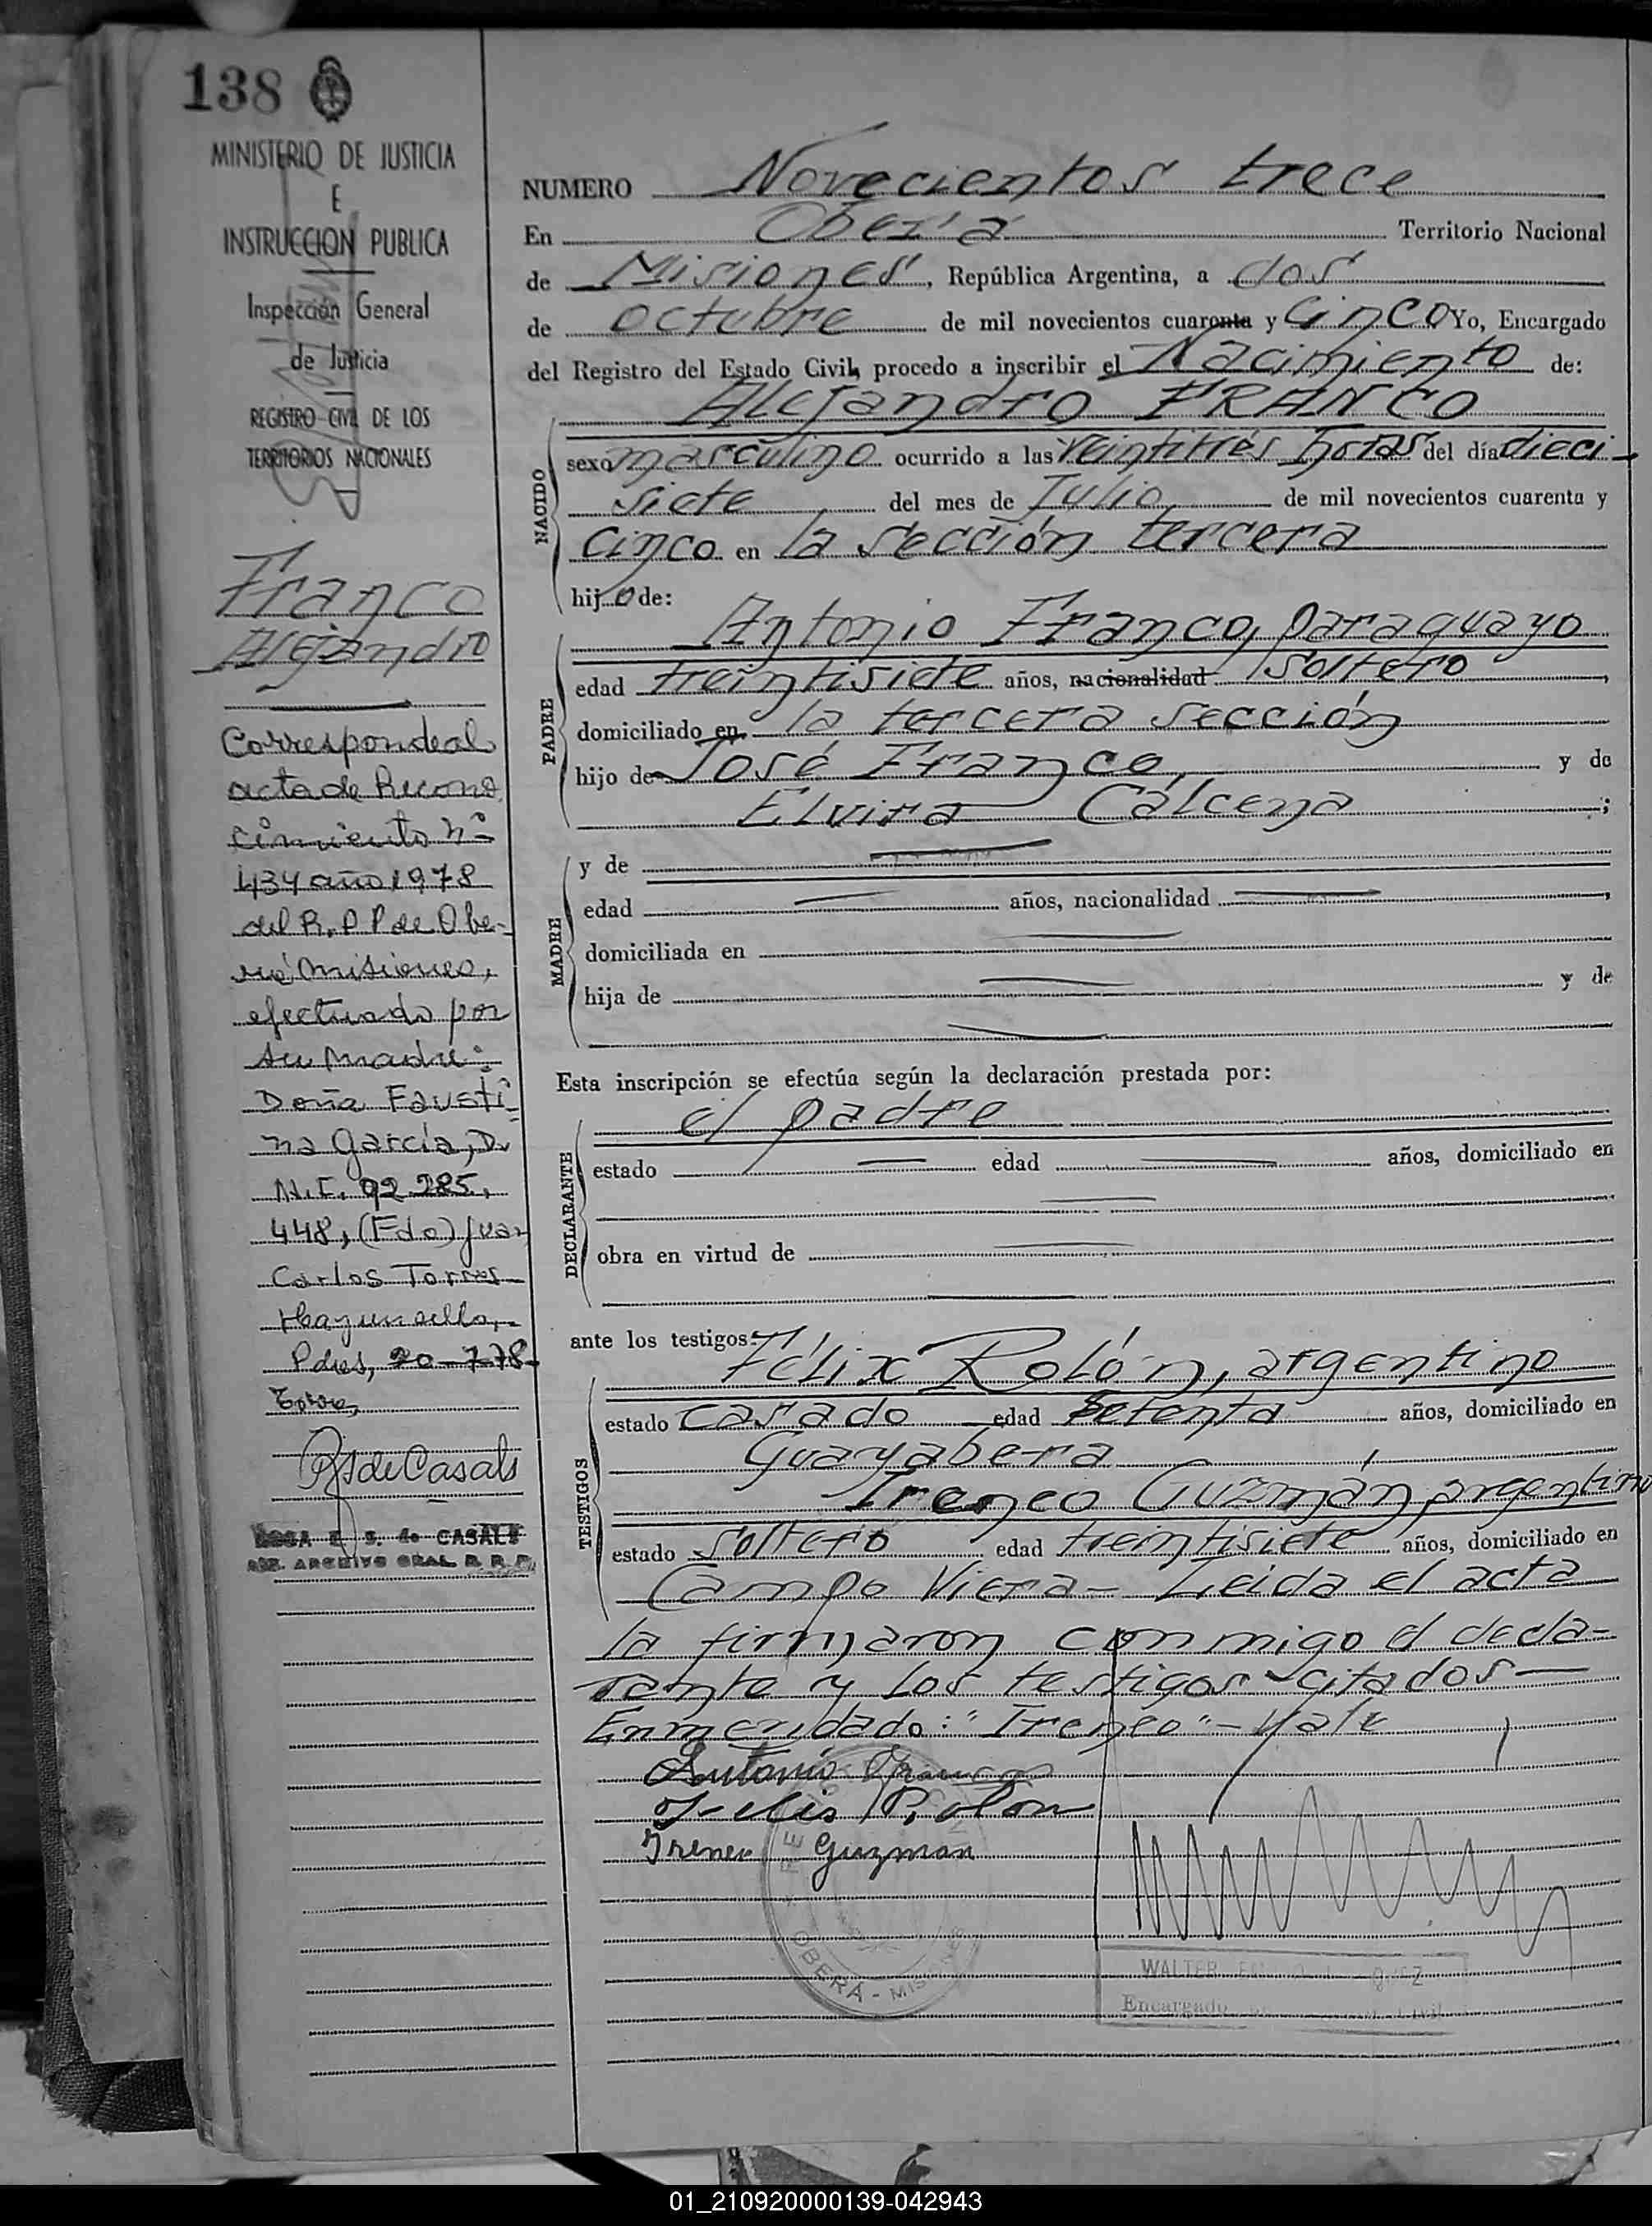 138
MINISTERIO DE JUSTICIA
E
INSTRUCCION PUBLICA
Inspección General
de Justicia
REGISTRO CIVIL DE LOS
TERRITORIOS NACIONALES
Franco
Alejandro
Corresponde al
acta de Recono
cimiento nº
434 año 1978
del R.P.P de Obe-
rá Misiones,
efectuado por
su madre:
Doña Fausti-
na García, D.
N.I. 92.285.
448, (Fdo) Juan
Carlos Torres
Pdas, 20-7-78-
RS de Casals
ROSA E. S. de CASALS
ARCHIVO GRAL R. P. P.
NUMERO Novecientos trece
En Oberá Territorio Nacional
de Misiones, República Argentina, a dos
de octubre de mil novecientos cuarenta y cinco Yo, Encargado
del Registro del Estado Civil, procedo a inscribir el Nacimiento de:
Alejandro FRANCO
NACIDO
sexo masculino ocurrido a las veintitrés horas del día dieci-
siete del mes de Julio de mil novecientos cuarenta y
cinco en la sección tercera
hijo de:
PADRE
Antonio Franco, paraguayo
edad treintisiete años, nacionalidad soltero,
domiciliado en la tercera sección
hijo de José Franco, y de
Elvira Cálcena ;
MADRE
y de
edad años, nacionalidad ,
domiciliada en
hija de y de
Esta inscripción se efectúa según la declaración prestada por:
DECLARANTE
el padre
estado edad años, domiciliado en
obra en virtud de
ante los testigos:
TESTIGOS
Félix Rolón, argentino
estado casado edad setenta años, domiciliado en
Guayabera
Ireneo Guzmán, argentino
estado soltero edad treintisiete años, domiciliado en
Campo Viera - Leida el acta
la firmaron conmigo el decla-
rante y los testigos citados —
Enmendado: "Ireneo" - Vale
Antonio Franco
Felis Rolon
Ireneo Guzman
OBERÁ - MISIONES
WALTER
Encargado
01_210920000139-042943